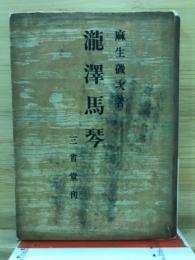 麻生磯次著
瀧澤馬琴
三省堂刊